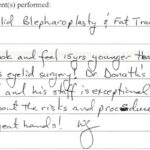 ent(s) performed:
lid Blepharoplasty & Fat Tra
ook and feel 15yrs younger tha
s eyelid surgery! Dr. Doraths
and his staff is exceptional
out the risks and procedur
eat hands!